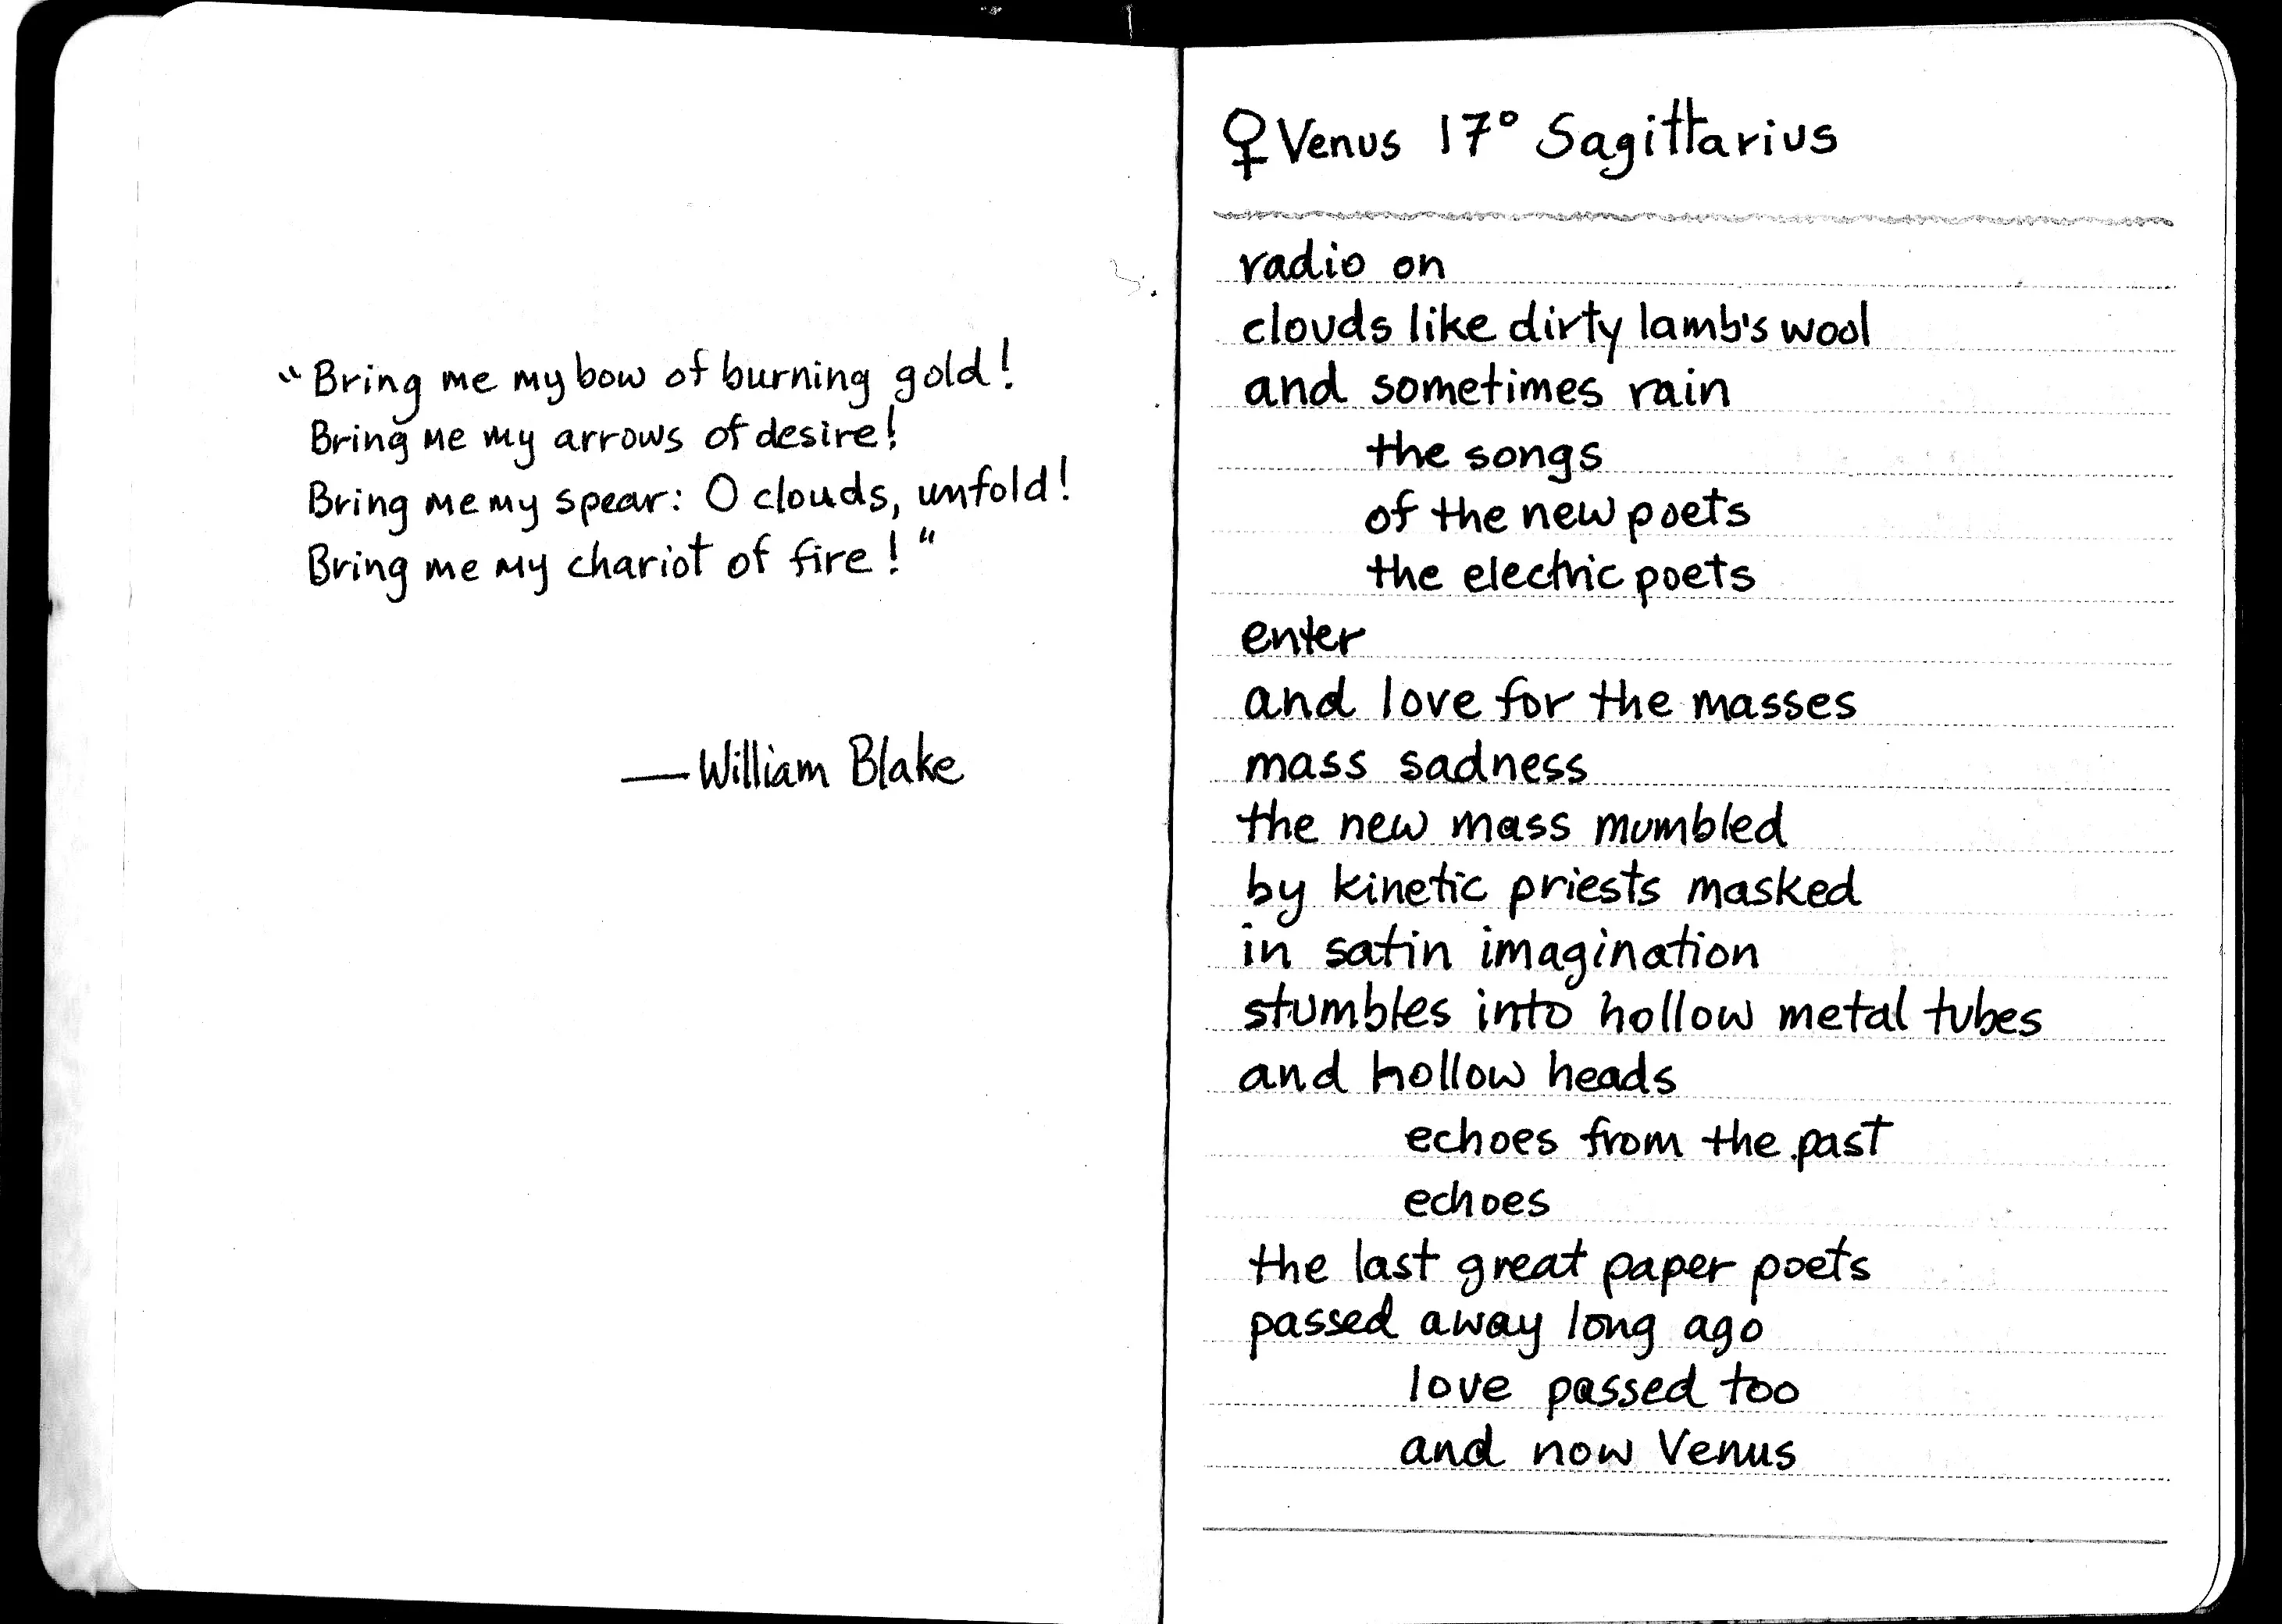 "Bring me my bow of burning gold!
Bring me my arrows of desire!
Bring me my spear: O clouds, unfold!
Bring me my chariot of fire!"
—William Blake
♀Venus 17° Sagittarius
radio on
clouds like dirty lamb's wool
and sometimes rain
the songs
of the new poets
the electric poets
enter
and love for the masses
mass sadness
the new mass mumbled
by kinetic priests masked
in satin imagination
stumbles into hollow metal tubes
and hollow heads
echoes from the past
echoes
the last great paper poets
passed away long ago
love passed too
and now Venus